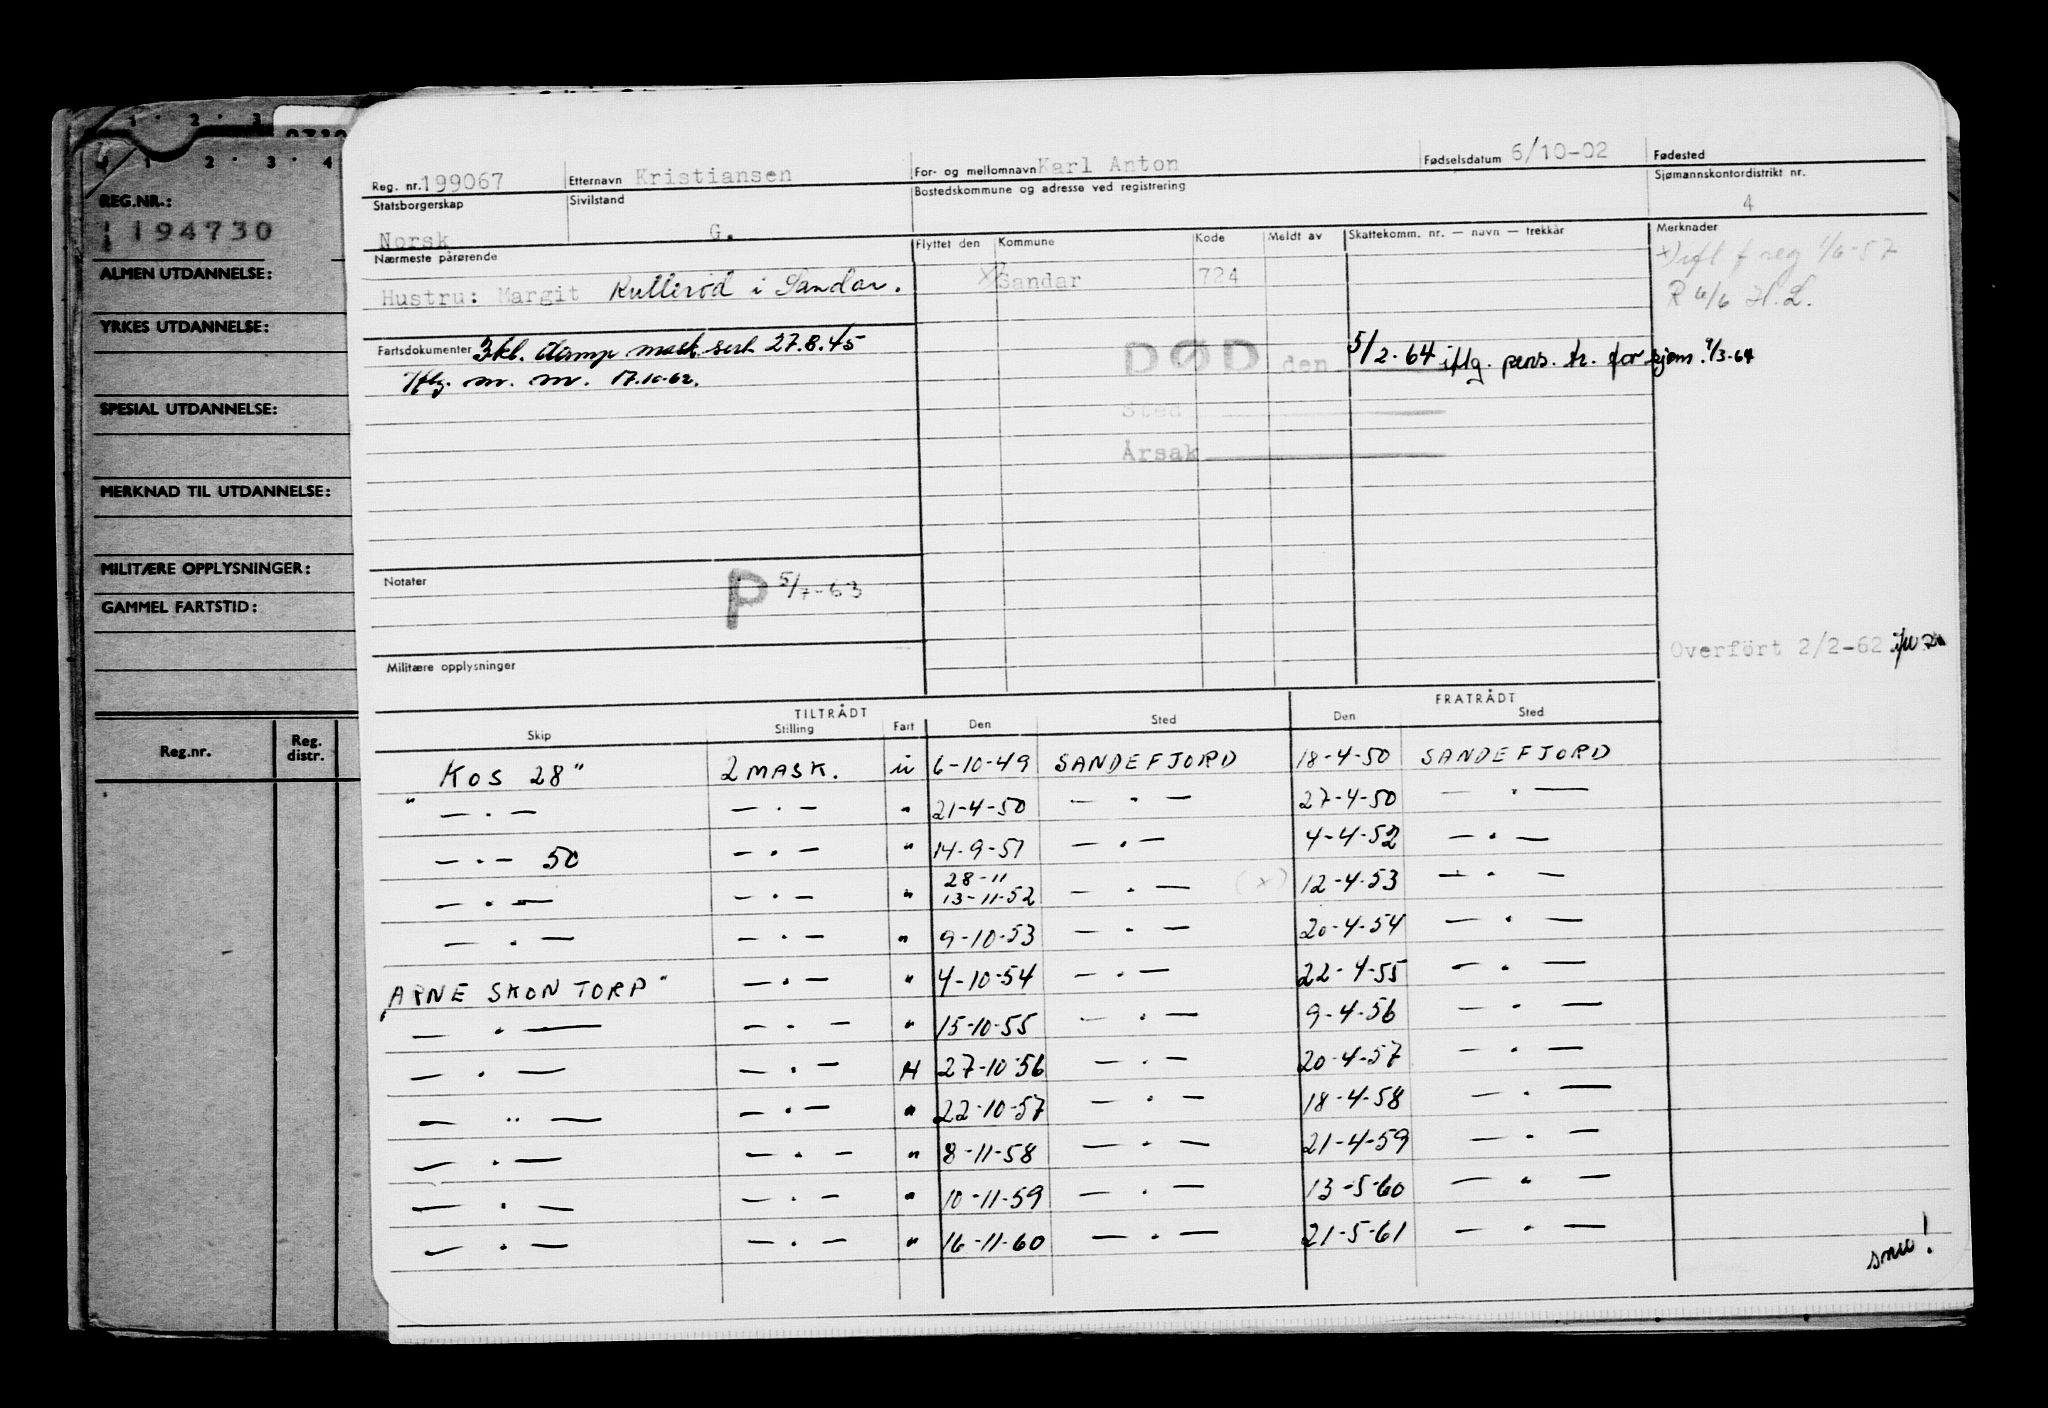 1 · 2 · 3
1 2 · 3 · 4
REG.NR.:
194730
ALMEN UTDANNELSE:
YRKES UTDANNELSE:
SPESIAL UTDANNELSE:
MERKNAD TIL UTDANNELSE:
MILITÆRE OPPLYSNINGER:
GAMMEL FARTSTID:
Reg.nr. Reg. distr.
Reg. nr. 199067 Etternavn Kristiansen For- og mellomnavn Karl Anton Fødselsdatum 6/10-02 Fødested
Statsborgerskap Sivilstand Bostedskommune og adresse ved registrering Sjømannskontordistrikt nr.
Norsk G. 4
Nærmeste pårørende Flyttet den Kommune Kode Meldt av Skattekomm. nr. — navn — trekkår Merknader
Hustru: Margit Kullerød i Sandar. x) Sandar 724 x) ifl f reg 1/6-57
R 6/6 H.L.
Fartsdokumenter 3kl. damp mask. sert. 27.8.45 DØD den 5/2-64 iflg. pens. tr. for sjøm. 9/3-64
Iflg. m. m. 17.10.62.
Sted
Årsak
Notater P 5/7-63
Overført 2/2-62
Militære opplysninger
TILTRÅDT FRATRÅDT
Skip Stilling Fart Den Sted Den Sted
KOS 28" 2 MASK. u 6-10-49 SANDEFJORD 18-4-50 SANDEFJORD
" — · — — · — " 21-4-50 — · — 27-4-50 — · —
— · — 50 — · — " 14-9-51 — · — 4-4-52 — · —
28-11
— · — — · — " 13-11-52 — · — (x) 12-4-53 — · —
— · — — · — " 9-10-53 — · — 20-4-54 — · —
ARNE SKONTORP" — · — " 4-10-54 — · — 22-4-55 — · —
— · — — · — " 15-10-55 — · — 9-4-56 — · —
— · — — · — H 27-10-56 — · — 20-4-57 — · —
— " — — · — " 22-10-57 — · — 18-4-58 — · —
— · — — · — " 8-11-58 — · — 21-4-59 — · —
— · — — · — " 10-11-59 — · — 13-5-60 — " —
— · — — · — " 16-11-60 — · — 21-5-61 — · —
snu!